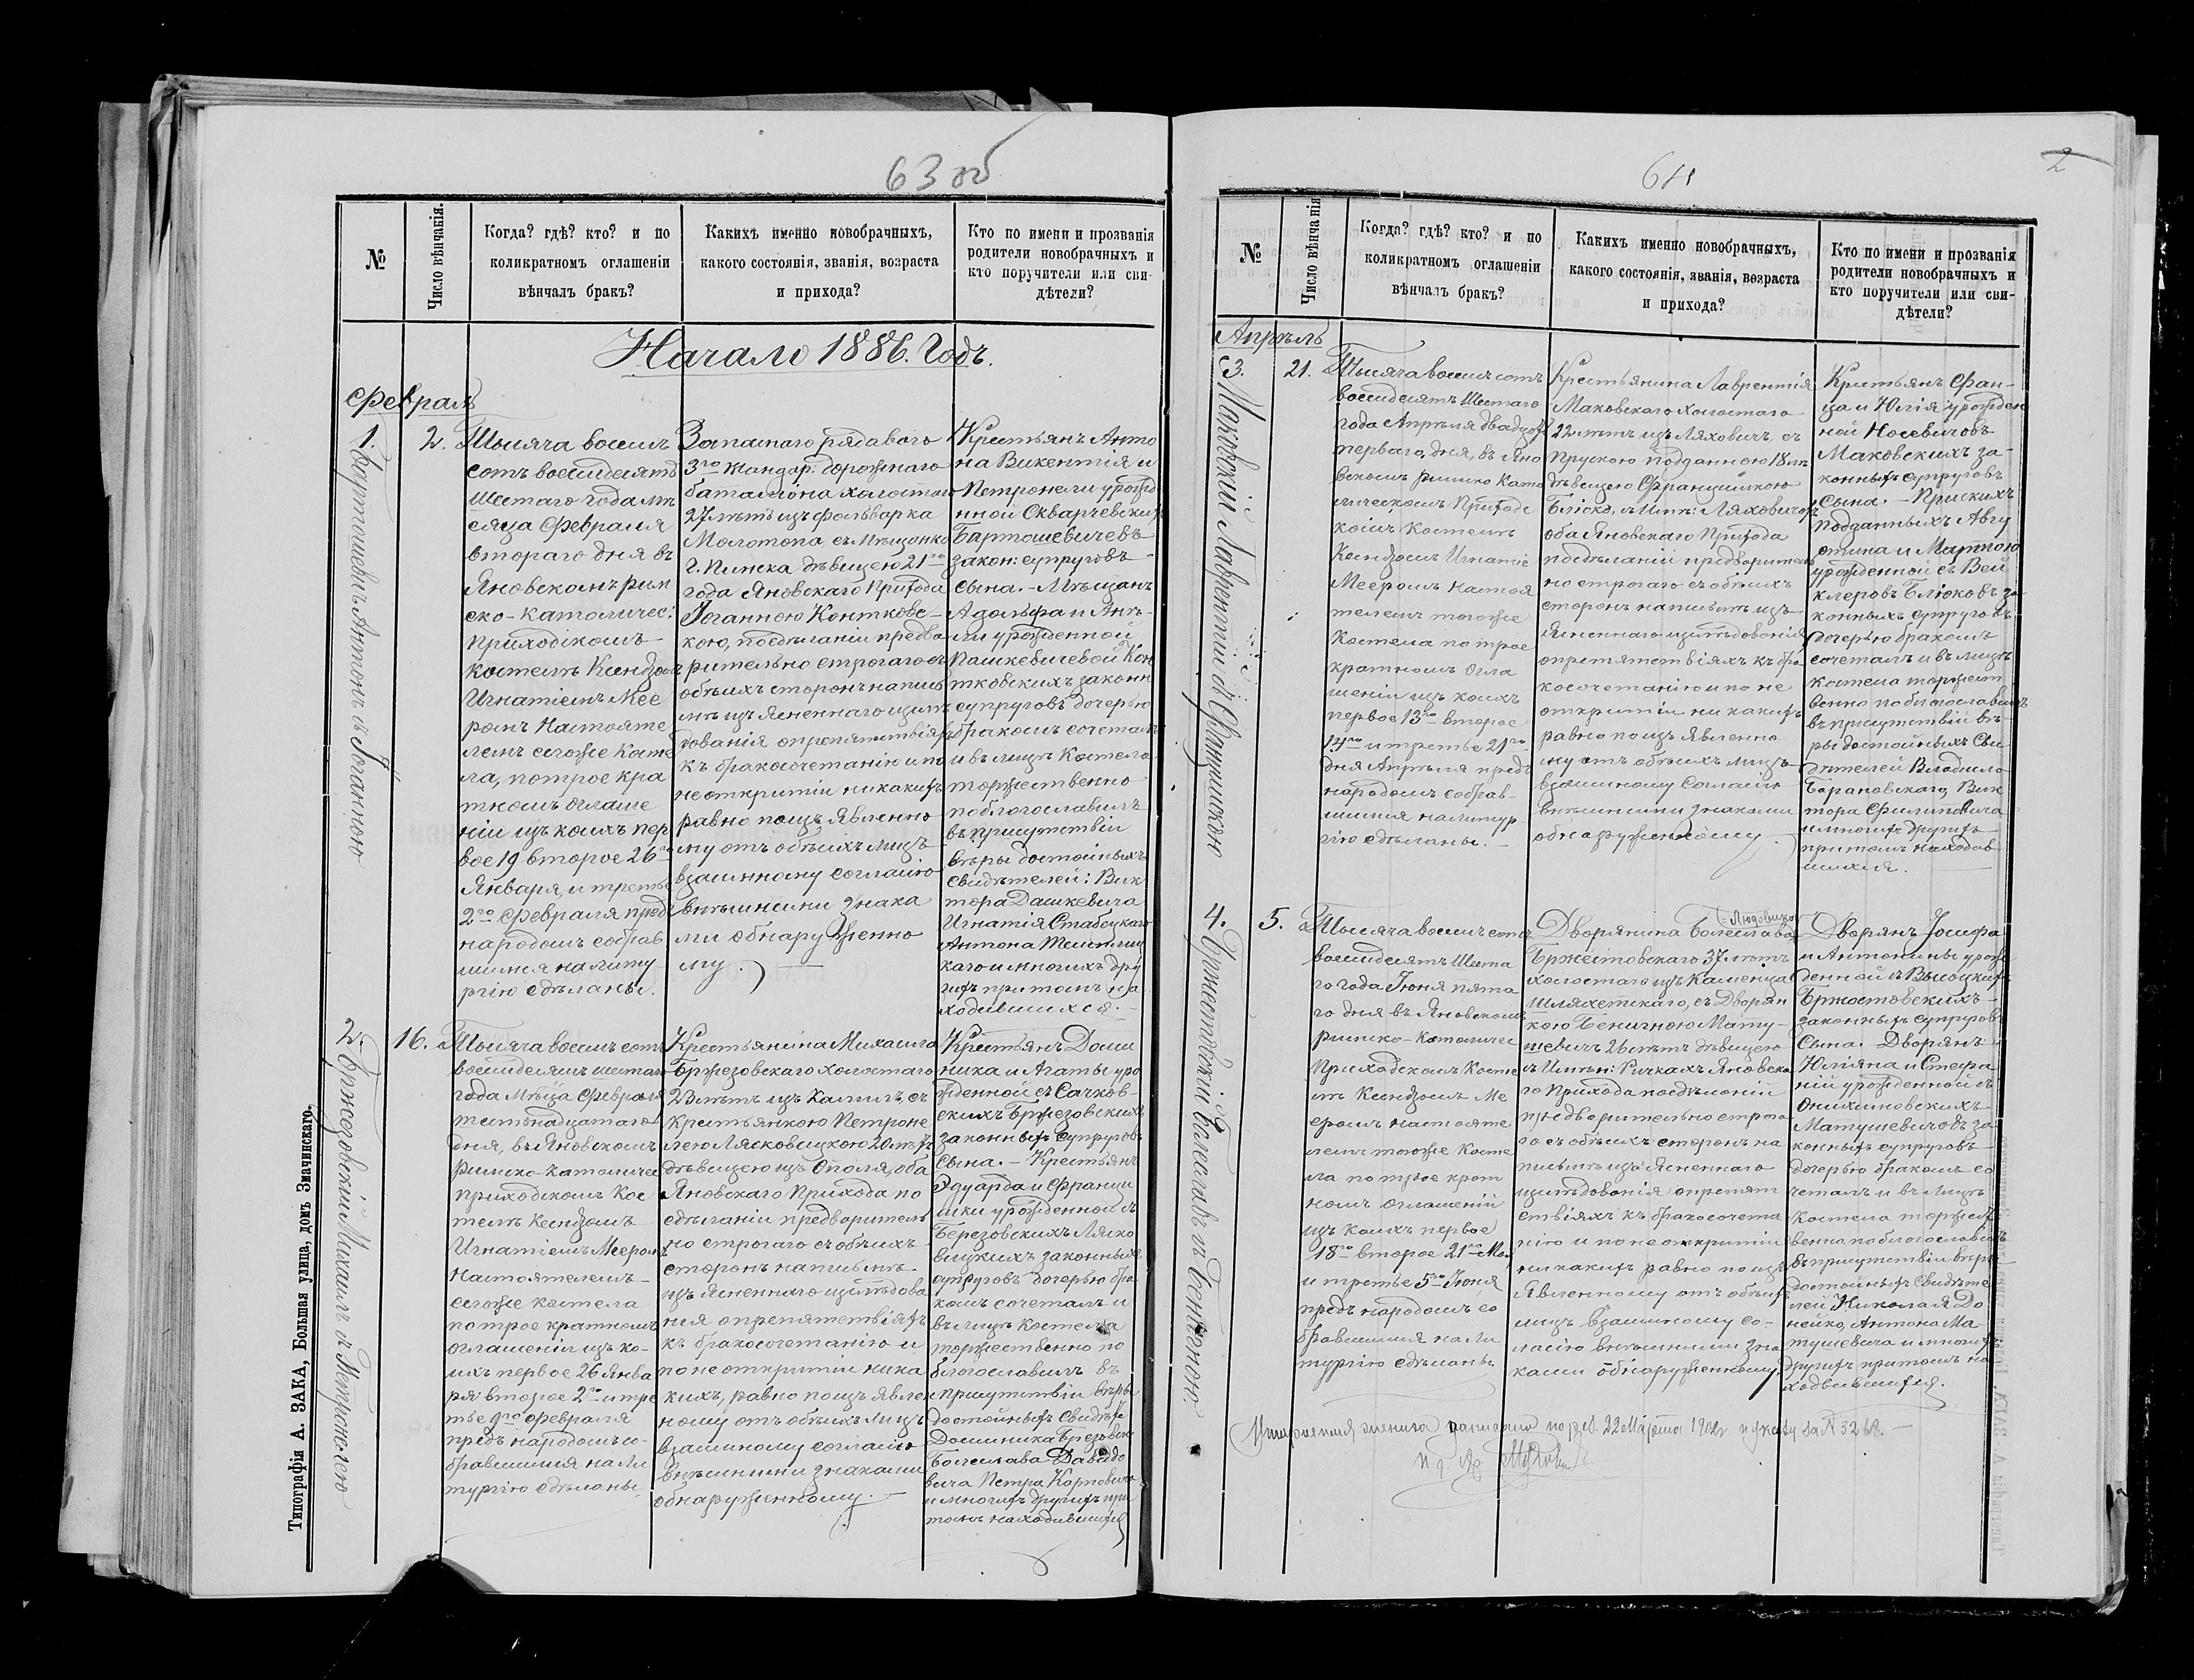 63 об
№
Число вѣнчанія.
Когда? гдѣ? кто? и по
коликратномъ оглашеніи
вѣнчалъ бракъ?
Какихъ именно новобрачныхъ,
какого состоянія, званія, возраста
и прихода?
Кто по имени и прозванія
родители новобрачныхъ и
кто поручители или сви-
дѣтели?
Начало 1886. Годъ.
Февраль
1.
Бартошевичъ Антонъ съ Іоганною
2.
Тысяча восемь
сотъ восемдесятъ
шестаго года мѣ
сяца Февраля
втораго дня въ
Яновскомъ рим
ско-католичес:
приходскомъ
костелѣ Ксендзомъ
Игнатіемъ Мее
ромъ Настояте
лемъ сегоже косте
ла, по трое кра
тномъ оглаше
ніи изъ коихъ пер
вое 19 второе 26го
Января, и третье
2го Февраля предъ
народомъ собрав
шимся на литу
ргію сдѣланы.
Запаснаго рядаваго
3го жандар: дорожнаго
баталіона холостаго
27 лѣтъ изъ фольварка
Молотопа, съ мѣщанко
г. Пинска дѣвицею 21го
года Яновскаго Прихода
Іоганною Контковс-
кою, посдѣланіи предва
рительно строгаго съ
обѣихъ сторонъ на пись
мѣ изъясненнаго изслѣ
дованія опрепятствіяхъ
къ бракосочетанію и по
неоткрытіи никакихъ
равно по изъявленно
му отъ обѣихъ лицъ
взаимному согласію
внѣшними знака
ми обнаруженно
му.
Крестьянъ Анто
на Викентія и
Петронели урожде
нной Скварчевских
Бартошевичевъ
закон: супруговъ
сына. - Мѣщанъ
Адольфа и Анѣ-
ли урожденной
Пашкевичевой Кон
тковскихъ законн
супруговъ дочерью
бракомъ сочеталъ
и въ лицѣ Костела
торжественно
поблогославилъ
въ присутствіи
вѣры достойныхъ
свидѣтелей: Вик
тора Дашкевича
Игнатія Стабецкаго
Антона
каго и многихъ дру
гихъ притомъ на
ходившихся.
2.
Бржезовскій Михаилъ съ Петронелею
16.
Тысяча восемь сотъ
восемдесятъ шестаго
года мѣсца Февраля
шестьнадцатаго
дня, въ Яновскомъ
римско католичес
приходскомъ кос
телѣ ксендзомъ
Игнатіемъ Мееромъ
Настоятелемъ
сегоже костела
по трое кратномъ
оглашеніи изъ ко-
ихъ первое 26 Янва
ря второе 2го и тре
тье 9го Февраля
предъ народомъ со-
бравшимся на Ли
тургію сдѣланы
Крестьянина Михаила
Бржезовскаго холостаго
23 лѣтъ изъ Калилъ съ
Крестьянкою Петроне
лею Лясковицкою 20 лѣтъ
дѣвицею изъ Ополя, оба
Яновскаго Прихода по
сдѣланіи предворитель
но строгаго съ обѣихъ
сторонъ написьмѣ
изъясненнаго изслѣдова
нія опрепятствіяхъ
къ бракосочетанію и
по не открытіи ника
кихъ, равно по изъявле
ному отъ обѣихъ лицъ
взаимному согласію
внѣшними знаками
обнаруженному.
Крестьянъ Доми
ника и Агаты уро
жденной съ Сачков-
скихъ Бржезовскихъ
законныхъ супруговъ
Сына. - Крестьянъ
Эдуарда и Францы
шки урожденной съ
Березовскихъ Ляско
вицкихъ законныхъ
супруговъ дочерью бра
комъ сочеталъ и
въ лицѣ костела
торжественно по
благославилъ въ
присутствіи вѣры
достойныхъ свидѣте
Доминика Брезовск
Болеслава Давидо
вича Петра Карповича
и многихъ другихъ при
томъ находившихся
Типографія А. ЗАКА, Большая улица, домъ Змачинскаго.
64
2
№
Число вѣнчанія
Когда? гдѣ? кто? и по
коликратномъ оглашеніи
вѣнчалъ бракъ?
Какихъ именно новобрачныхъ,
какого состоянія, званія, возраста
и прихода?
Кто по имени и прозванія
родители новобрачныхъ и
кто поручители или сви-
дѣтели?
Апрѣль
3.
Маковскій Лаврентій съ Францишкою
21.
Тысяча восемь сотъ
восемдесятъ Шестаго
года Апрѣля двадцать
перваго, дня, въ Яно
вскомъ римско Като
лическомъ Приход
скомъ Костелѣ
Ксендзомъ Игнатіе
Мееромъ настоя
телемъ тогоже
Костела по трое
кратномъ огла
шеніи изъ коихъ
первое 13го второе
14го и третье 21го
дня Апрѣля предъ
народомъ собрав-
шимся на литур
гію сдѣланы. -
Крестьянина Лаврентія
Маковскаго холостаго
22 лѣтъ изъ Ляховичъ, съ
Прускою подданною 18 лѣ
дѣвицею Францишкою
Блюкъ, съ имѣ: Ляховичъ
оба Яновскаго Прихода
посдѣланіи предворитель
но строгаго съ обѣихъ
сторонъ написьмѣ изъ
ясненнаго изслѣдованія
опрепятствіяхъ къ бра
косочетанію и по не
открытіи никакихъ
равно по изъ явленно
му отъ обѣихъ лицъ
взаимному согласію
внѣшними знаками
обнаруженному
Крестьянъ Фран-
ца и Юлія урожден
ной Носевичовъ
Маковскихъ за-
конныхъ супруговъ
Сына. - Прускихъ
подданныхъ Авгу
стина и
урожденной съ Вей
клеровъ Блюковъ за
конныхъ супруговъ
дочерью бракомъ
сочеталъ и въ лицѣ
костела торжест
венно поблогославилъ
въ присутствіи вѣ-
ры достойныхъ Сви
дѣтелей Владисла
Барановскаго, Вик
тора Филиповича
и многихъ другихъ
притомъ находив
шихся.
4.
Бржестовскій Болеславъ съ Бенигною.
5.
Тысяча восемь сотъ
восемдесятъ Шеста
го года Іюня пята
го дня въ Яновскомъ
римско-Католичес
Приходскомъ Косте
лѣ Ксендзомъ Ме
еромъ настояте
лемъ тогоже Косте
ла по трое крат
номъ оглашеніи
изъ коихъ первое
18го второе 21го Мая
и третье 5го Іюня
предъ народомъ со
бравшимся на Ли
тургію сдѣланы
Людовика
Дворянина Болеслава
Бржестовскаго 37 лѣтъ
холостаго изъ Каменца
Шляхетскаго, съ Дворян
кою Бенигною Мату-
шевичъ 26 лѣтъ дѣвицею
съ Имѣн: Ричкахъ Яновска
го Прихода посдѣланіи
предворительно строга
го съ обѣихъ сторонъ на
письмѣ изъ ясненнаго
изслѣдованія опрепят
ствіяхъ къ бракосочета
нію и по не открытіи
никакихъ равно по изъ
явленному отъ обѣих
лицъ взаимному со-
гласію внѣшними зна
ками обнаруженному.
Дворянъ Іосифа
и Антонины урож
денной съ Высоцких
Бржостовскихъ
законныхъ супругов
Сына. Дворянъ
Юліяна и Стефа
ніи урожденной съ
Онихимовскихъ
Матушевичовъ за
конныхъ супруговъ
дочерью бракомъ со
четалъ и въ Лицѣ
Костела торжест
венно по благословилъ
въ присутствіи вѣры
достойныхъ Свидѣте
лей Николая До
нейко, Антона Ма-
тушевича и многихъ
другихъ притомъ на
ходившихся.
22 Марта 1902 г. и указу за № 3268. -